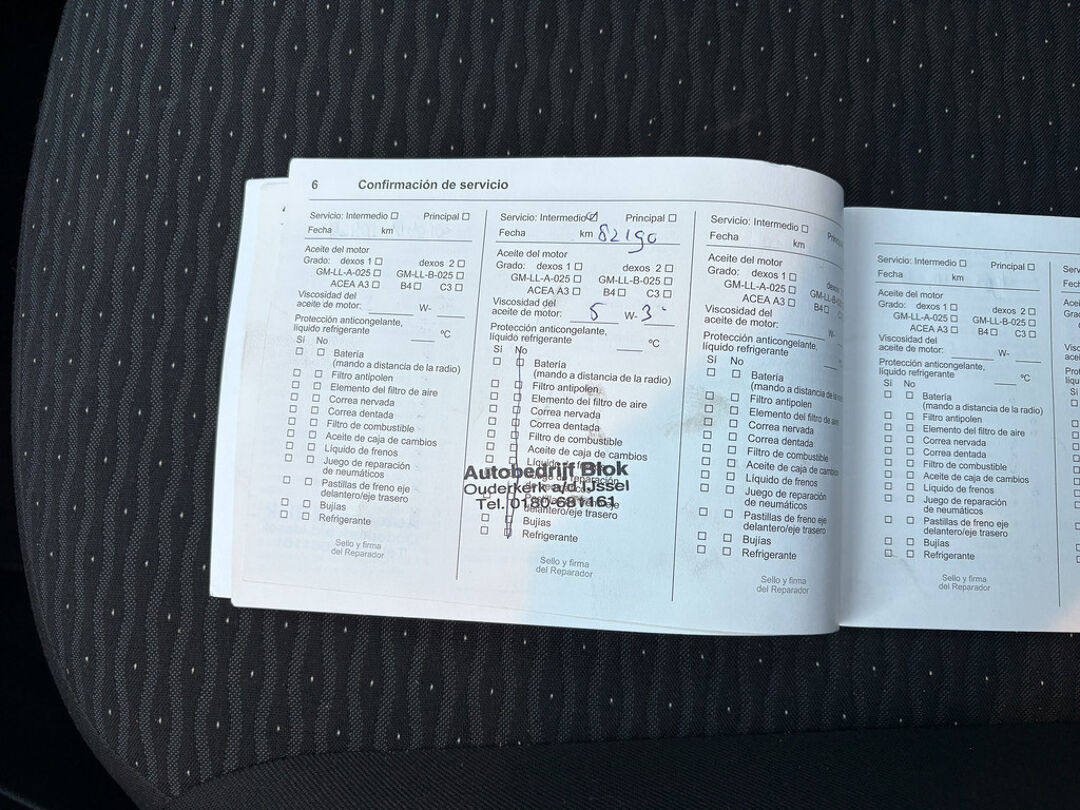 6 Confirmación de servicio
Servicio: Intermedio ☐ Principal ☐
Fecha km
Aceite del motor
Grado: dexos 1 ☐ dexos 2 ☐
GM-LL-A-025 ☐ GM-LL-B-025 ☐
ACEA A3 ☐ B4 ☐ C3 ☐
Viscosidad del
aceite de motor: ____ W- ____
Protección anticongelante,
líquido refrigerante ____ °C
Sí No
☐ ☐ Batería
(mando a distancia de la radio)
☐ ☐ Filtro antipolen
☐ ☐ Elemento del filtro de aire
☐ ☐ Correa nervada
☐ ☐ Correa dentada
☐ ☐ Filtro de combustible
☐ ☐ Aceite de caja de cambios
☐ ☐ Líquido de frenos
☐ ☐ Juego de reparación
de neumáticos
☐ ☐ Pastillas de freno eje
delantero/eje trasero
☐ ☐ Bujías
☐ ☐ Refrigerante
Sello y firma
del Reparador
Servicio: Intermedio ☑ Principal ☐
Fecha km 82190
Aceite del motor
Grado: dexos 1 ☐ dexos 2 ☐
GM-LL-A-025 ☐ GM-LL-B-025 ☐
ACEA A3 ☐ B4 ☐ C3 ☐
Viscosidad del
aceite de motor: 5 W- 3
Protección anticongelante,
líquido refrigerante ____ °C
Sí No
☐ ☐ Batería
(mando a distancia de la radio)
☐ ☐ Filtro antipolen
☐ ☐ Elemento del filtro de aire
☐ ☐ Correa nervada
☐ ☐ Correa dentada
☐ ☐ Filtro de combustible
☐ ☐ Aceite de caja de cambios
Autobedrijf Blok
Ouderkerk a/d IJssel
Tel. 0180-681161
delantero/eje trasero
☐ ☐ Bujías
☐ ☐ Refrigerante
Sello y firma
del Reparador
Servicio: Intermedio ☐
Fecha km
Aceite del motor
Grado: dexos 1 ☐
GM-LL-A-025 ☐
ACEA A3 ☐ B4 ☐
Viscosidad del
aceite de motor: ____ W-
Protección anticongelante,
líquido refrigerante
Sí No
☐ ☐ Batería
(mando a distancia de la
☐ ☐ Filtro antipolen
☐ ☐ Elemento del filtro de aire
☐ ☐ Correa nervada
☐ ☐ Correa dentada
☐ ☐ Filtro de combustible
☐ ☐ Aceite de caja de cambios
☐ ☐ Líquido de frenos
☐ ☐ Juego de reparación
de neumáticos
☐ ☐ Pastillas de freno eje
delantero/eje trasero
☐ ☐ Bujías
☐ ☐ Refrigerante
Sello y firma
del Reparador
Servicio: Intermedio ☐ Principal ☐
Fecha km
Aceite del motor
Grado: dexos 1 ☐ dexos 2 ☐
GM-LL-A-025 ☐ GM-LL-B-025 ☐
ACEA A3 ☐ B4 ☐ C3 ☐
Viscosidad del
aceite de motor: ____ W- ____
Protección anticongelante,
líquido refrigerante ____ °C
Sí No
☐ ☐ Batería
(mando a distancia de la radio)
☐ ☐ Filtro antipolen
☐ ☐ Elemento del filtro de aire
☐ ☐ Correa nervada
☐ ☐ Correa dentada
☐ ☐ Filtro de combustible
☐ ☐ Aceite de caja de cambios
☐ ☐ Líquido de frenos
☐ ☐ Juego de reparación
de neumáticos
☐ ☐ Pastillas de freno eje
delantero/eje trasero
☐ ☐ Bujías
☐ ☐ Refrigerante
Sello y firma
del Reparador